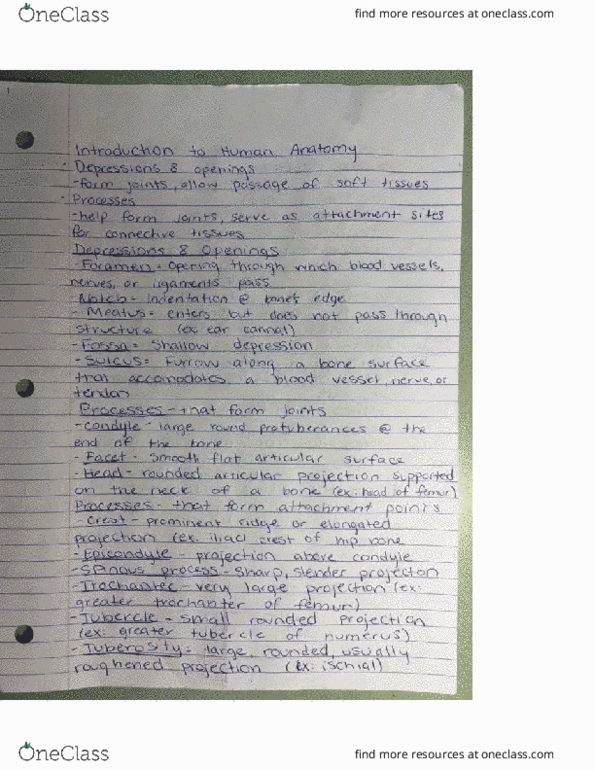 OneClass
find more resources at oneclass.com
Introduction to Human Anatomy
Depressions & openings
-form joints, allow passage of soft tissues
Processes
-help form joints, serve as attachment sites
for connective tissues
Depressions & Openings
-Foramen= opening through which blood vessels,
nerves, or ligaments pass
-Notch= indentation @ bone's edge
-Meatus= enters but does not pass through
structure (ex ear cannal)
-Fossa= Shallow depression
-Sulcus= Furrow along a bone surface
that accomodates a blood vessel, nerve, or
tendon
Processes -that form joints
-condyle- large round protuberances @ the
end of the bone
-Facet- Smooth flat articular surface
-Head- rounded articular projection supported
on the neck of a bone (ex: head of femur)
Processes- that form attachment points
-Crest- prominent ridge or elongated
projection (ex. iliac) crest of hip bone
-Epicondyle - projection above condyle
-Spinous process- Sharp, slender projection
-Trochanter- very large projection (ex:
greater trochanter of femur)
-Tubercle- small rounded projection
(ex: greater tubercle of humerus)
-Tuberosity- large, rounded, usually
roughened projection (Ex: ischial)
OneClass
find more resources at oneclass.com